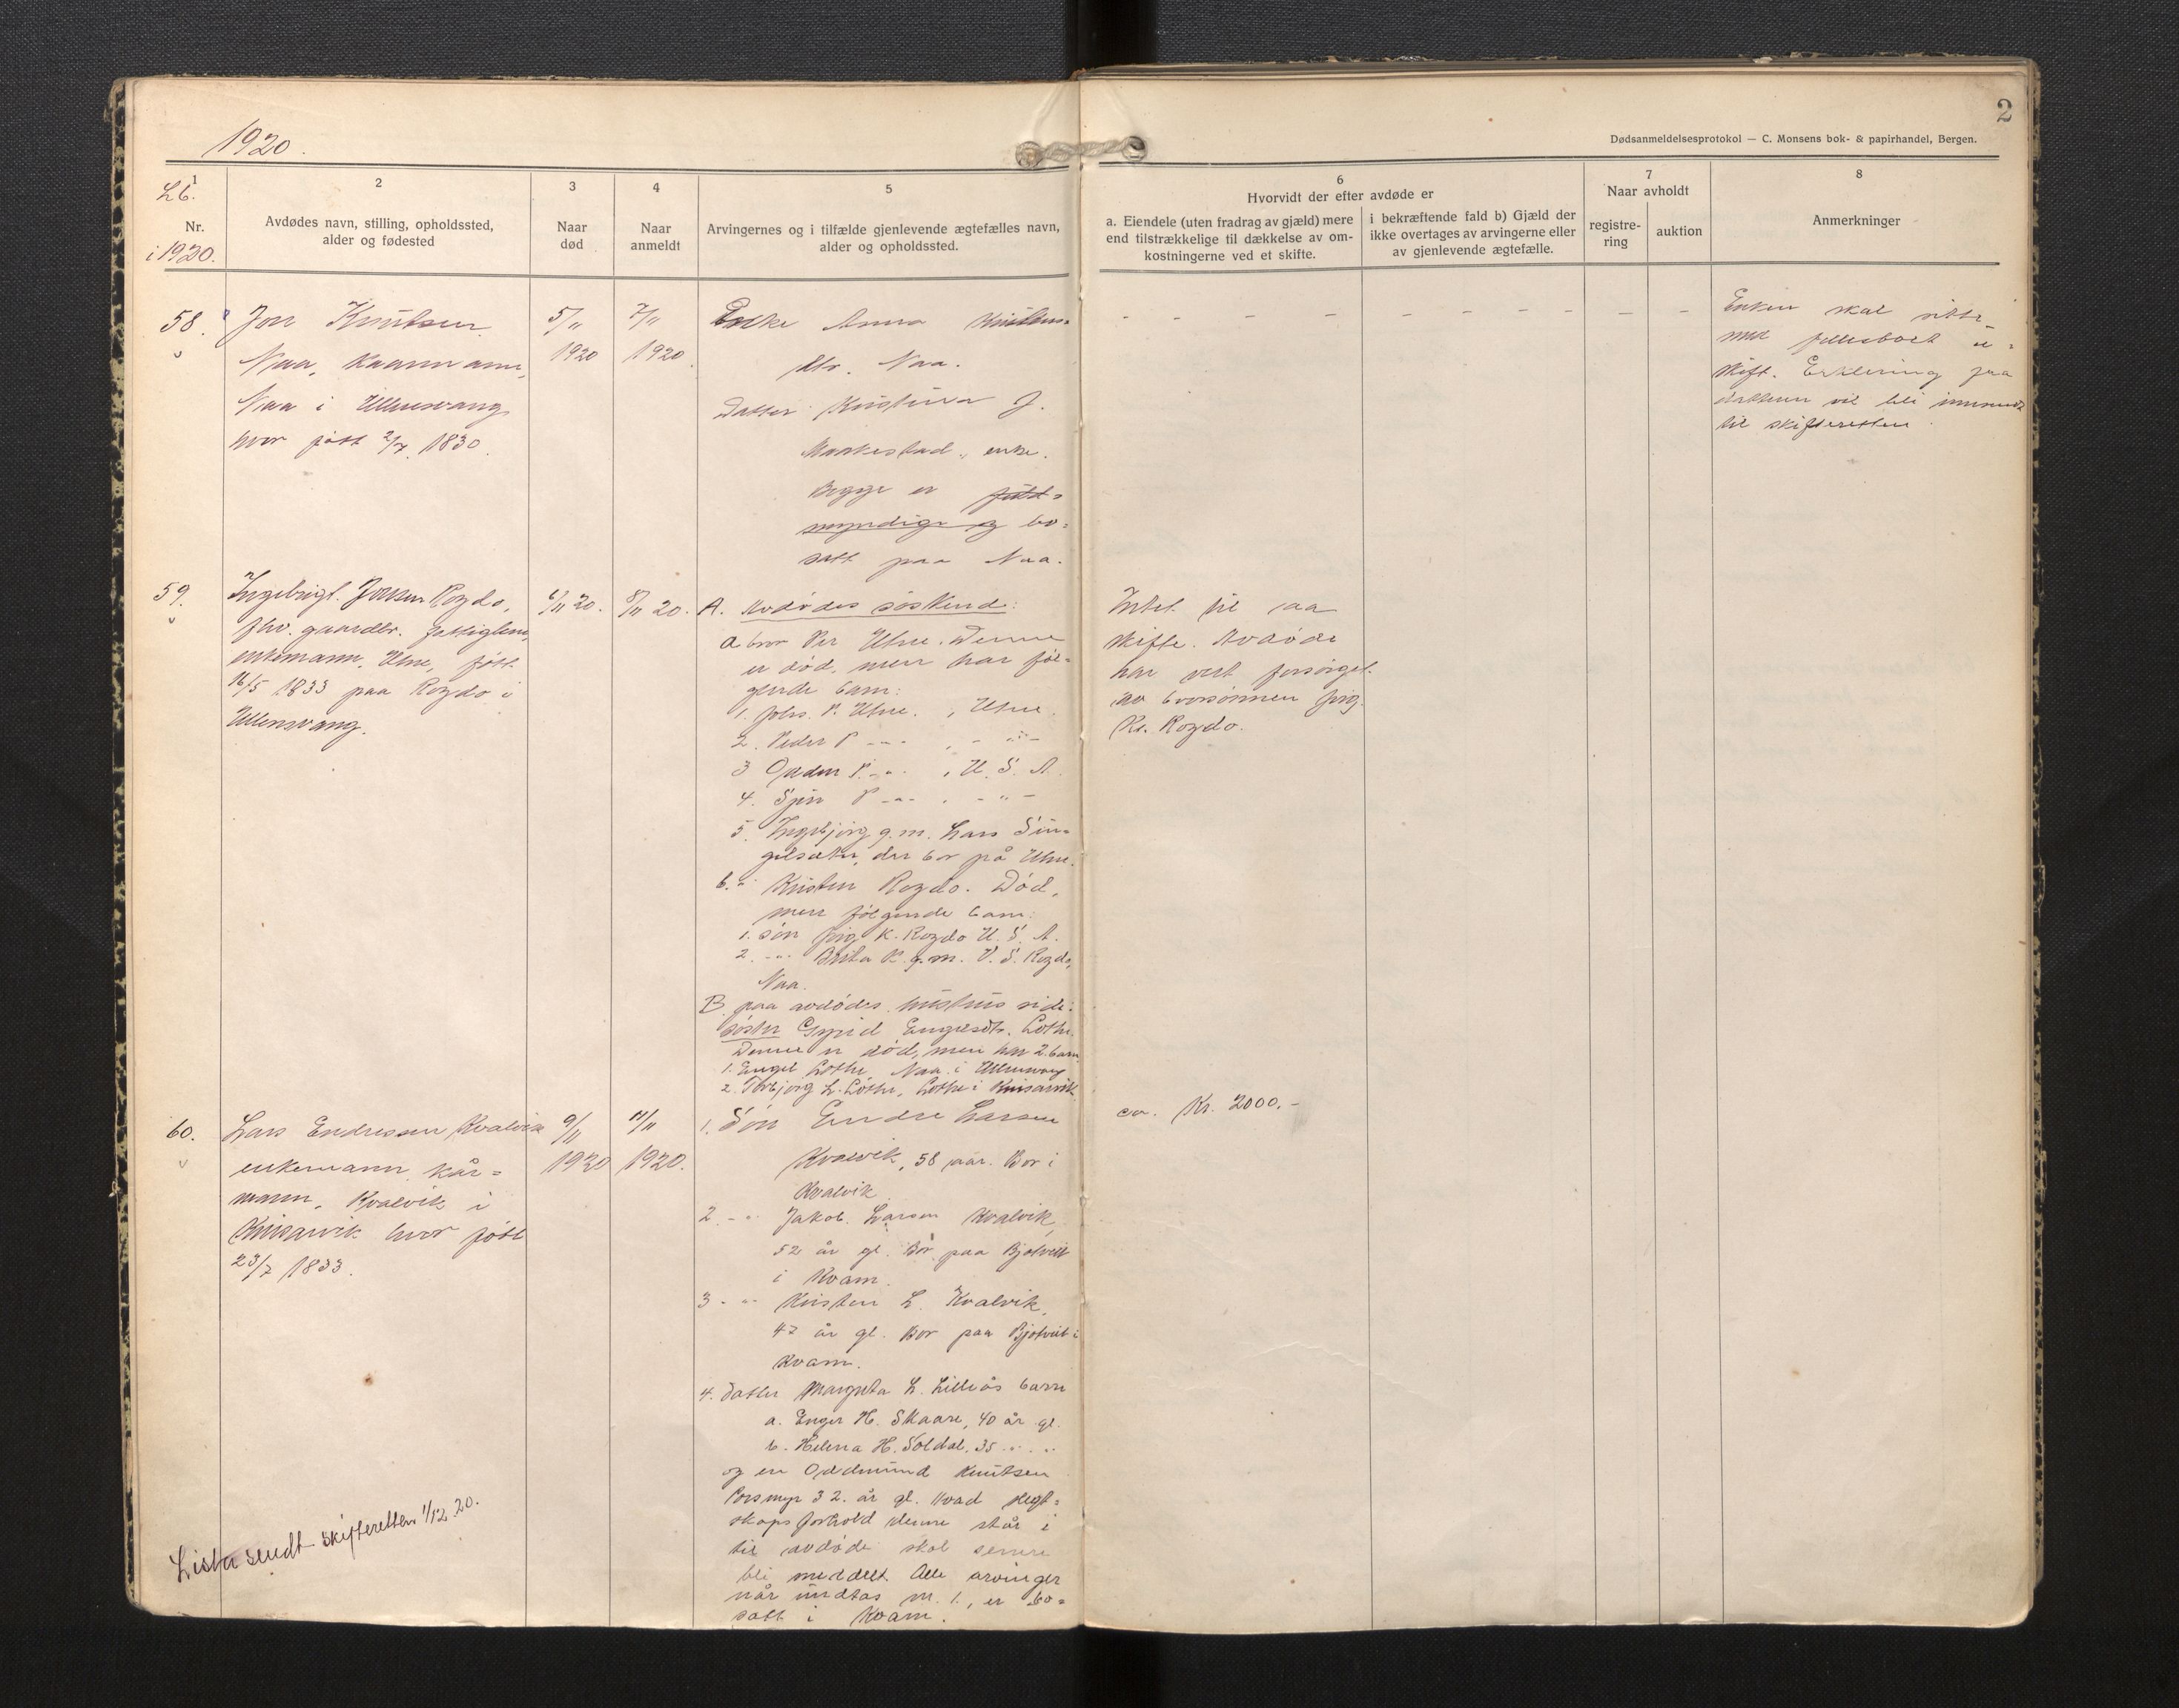 2
Dødsanmeldelsesprotokol — C. Monsens bok- & papirhandel, Bergen.
1920.
Lb.
1
Nr.
i 1920.
2
Avdødes navn, stilling, opholdssted,
alder og fødested
3
Naar
død
4
Naar
anmeldt
5
Arvingernes og i tilfælde gjenlevende ægtefælles navn,
alder og opholdssted.
6
Hvorvidt der efter avdøde er
a. Eiendele (uten fradrag av gjæld) mere
end tilstrækkelige til dækkelse av om-
kostningerne ved et skifte.
i bekræftende fald b) Gjæld der
ikke overtages av arvingerne eller
av gjenlevende ægtefælle.
7
Naar avholdt
registre-
ring
auktion
8
Anmerkninger
58.
Jon Knutsen
Naa, kaarmann,
Naa i Ullensvang
hvor født 2/7 1830.
5/11
1920
7/11
1920.
Enke Anna
Naa.
Datter Kristina J.
Maakestad, enke.
Begge er fuld=
myndige og bo=
satt paa Naa.
Enken skal sitte
med fellesboet u=
skift. Erklering fra
datteren vil bli innsendt
til skifteretten.
59.
Ingebrigt Jonsen Rogdo,
fhv. gaardbr. fattiglem,
enkemann, Utne, født
16/5 1833 paa Rogdo i
Ullensvang.
6/11 20.
8/11 20.
A. Avdødes søskend:
a bror Per Utne. Denne
er død, men har føl=
gende barn:
1. Johs. P. Utne, Utne.
2. Peder P -"- , -"-
3 P. -"- , U. S. A.
4. P -"- , -"-
5. Ingebjørg g.m. Lars
der bor på Utne.
b. -"- Kristen Rogdo. Død,
men følgende barn:
1. søn K. Rogdo U. S. A.
2. -"- Brita K. g.m. V. S. Rogdo,
Naa.
B. paa avdødes hustrus side:
søster Gyrid Lothe.
Denne er død, men har 2 barn
1. Engel Lothe, Naa i Ullensvang
2. Torbjørg L. Lothe, Lothe i Kinsarvik
Intet til aa
skifte. Avdøde
har vert forsørget
av brorsønnen
Kr. Rogdo.
60.
Lars Endresen Kvalvik
enkemann, kår=
mann, Kvalvik i
Kinsarvik hvor født
23/7 1833.
9/11
1920
11/11
1920.
1. Søn Endre Larsen
Kvalvik, 58 aar. Bor i
Kvalvik
2. -"- Jakob Larsen Kvalvik,
52 år gl. Bor paa
i Kvam.
3 -"- Kristen L. Kvalvik,
47 år gl. Bor paa
Kvam.
4. Datter Margreta L. Lilleås barn
a. H. Skaare, 40 år gl.
b. Helena H. Soldal, 35 -"- -"-
og en Oddmund Knutsen
32 år gl. Hvad slegt=
skapsforhold denne står i
til avdøde skal senere
bli meddelt. Alle arvinger
når undtas nr. 1, er bo=
satt i Kvam.
ca. Kr. 2000.-
Lista sendt skifteretten 1/12.20.